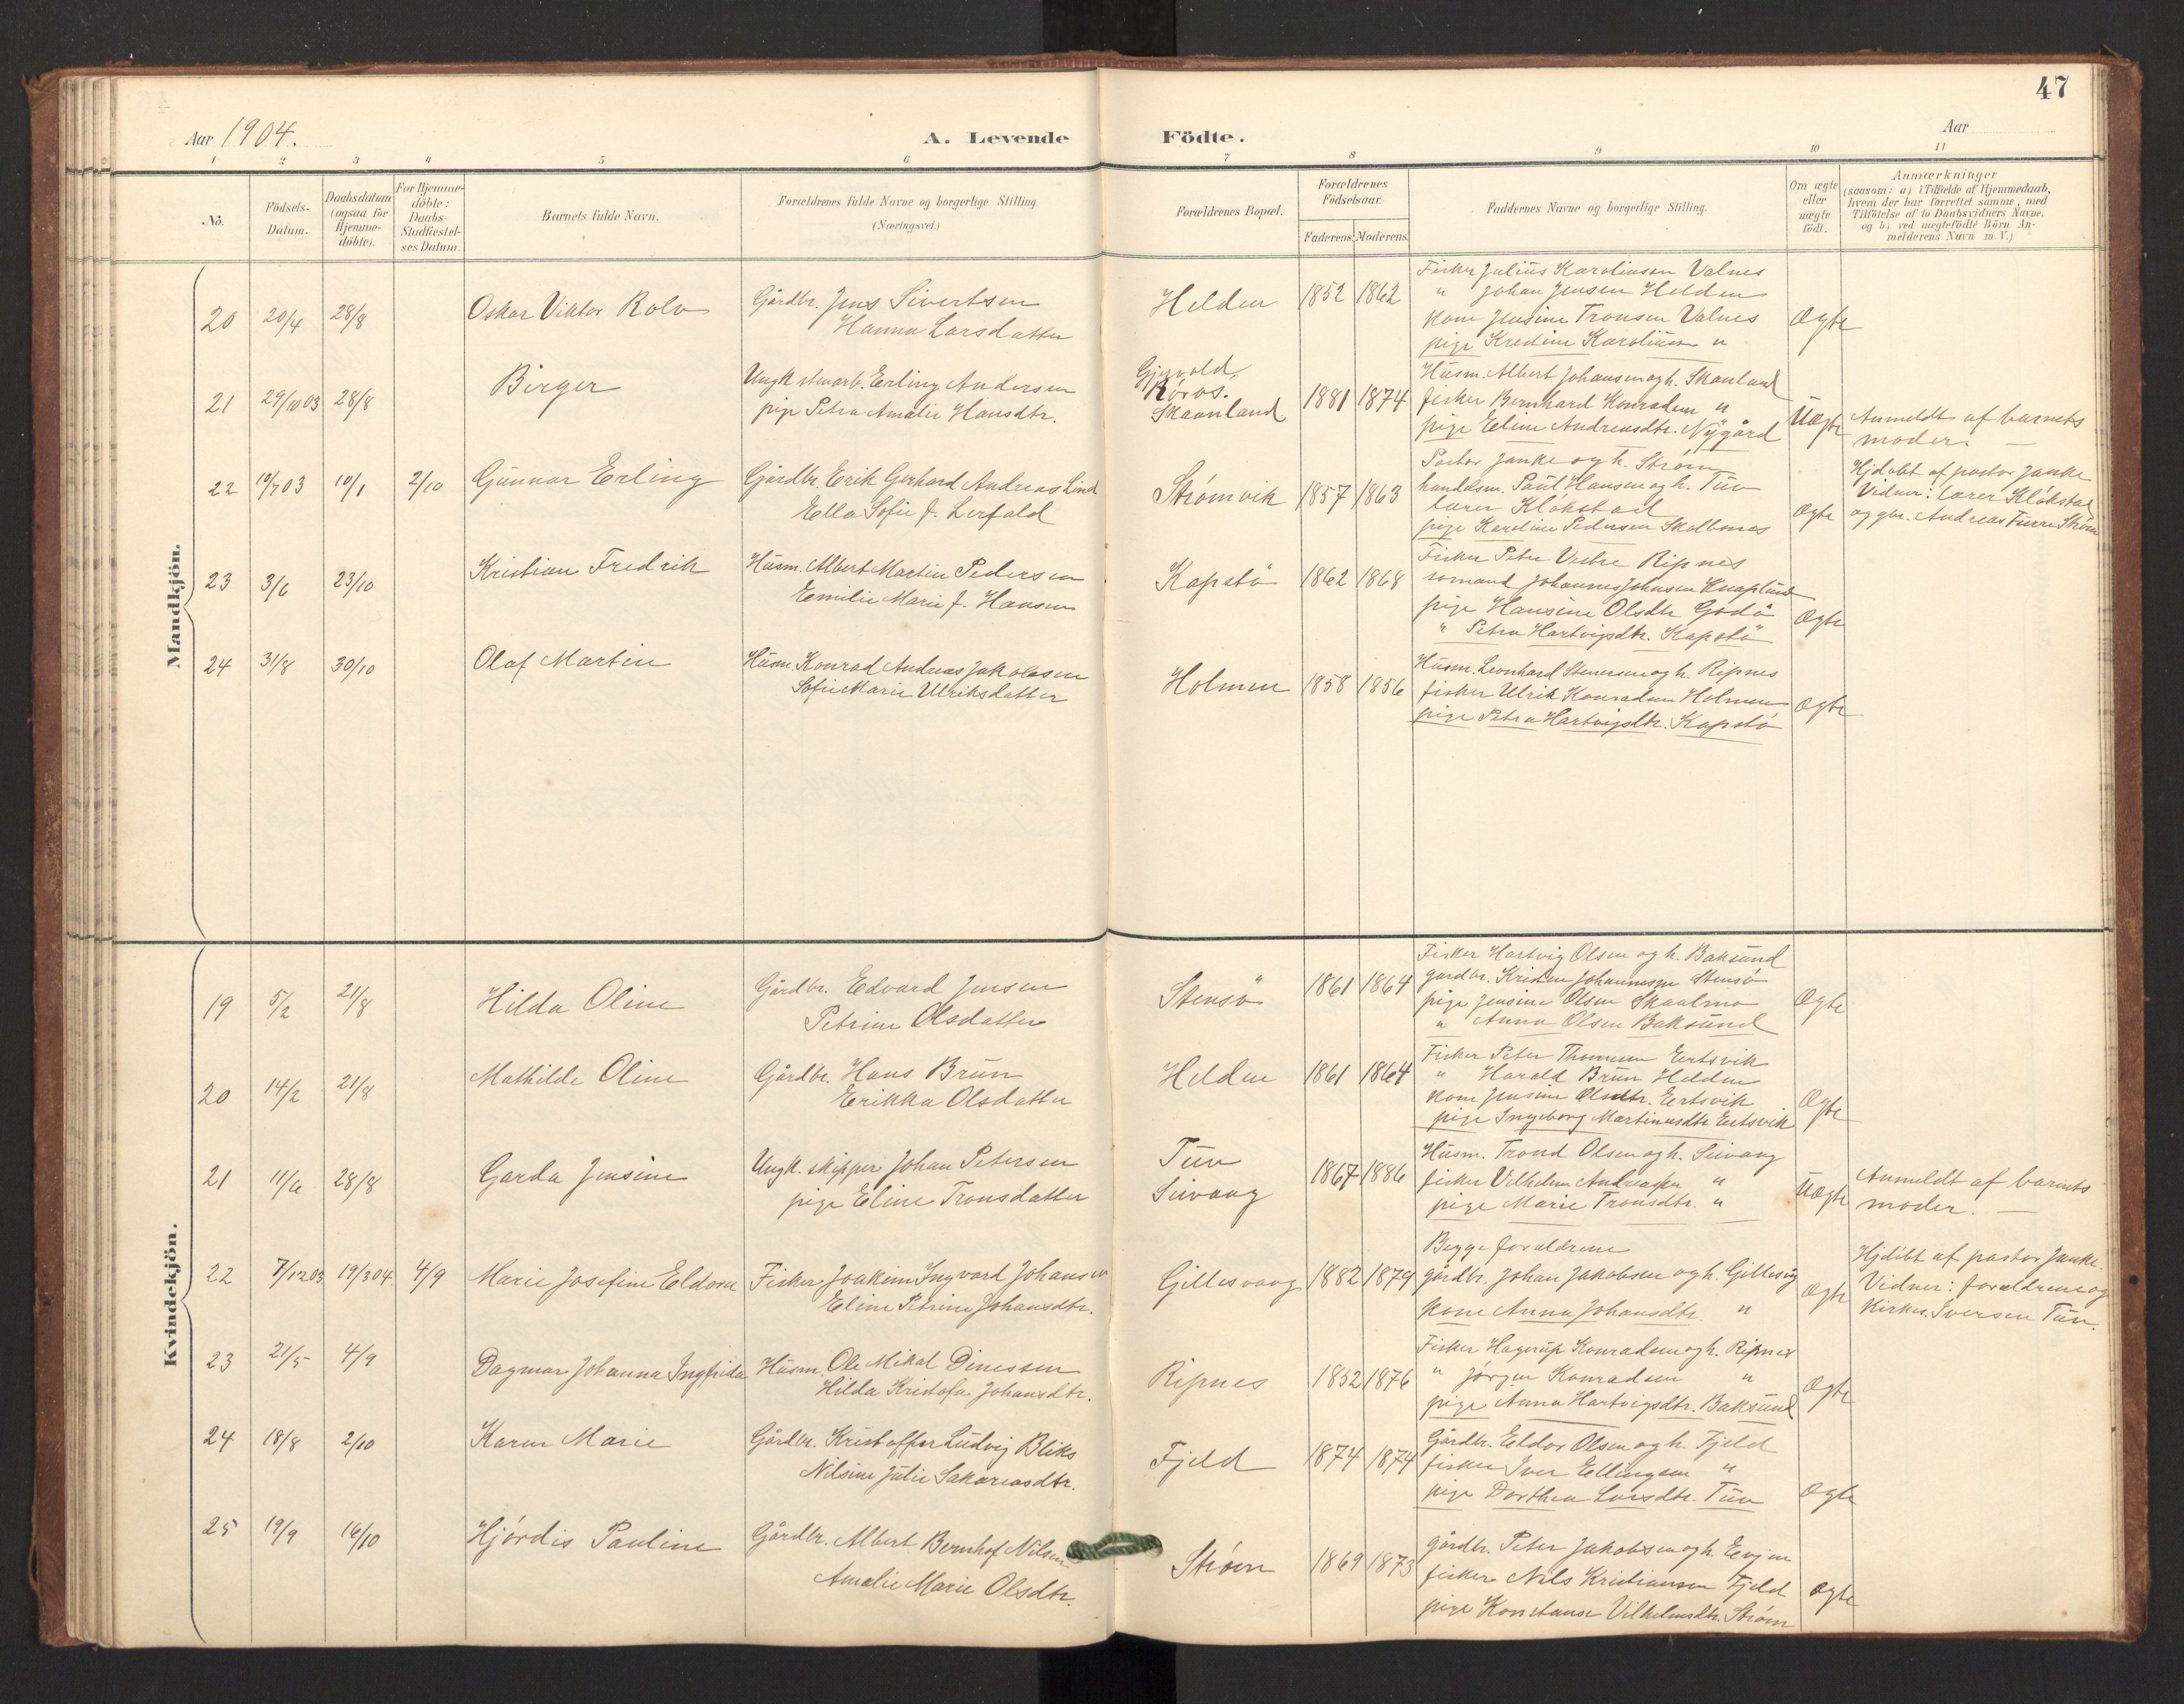 47
Aar 1904.
A. Levende Födte.
Aar
1 2 3 4 5 6 7 8 9 10 11
No.
Födsels-Datum.
Daabsdatum (ogsaa for Hjemme-döbte).
For Hjemme-döbte: Daabs-Stadfæstel-ses Datum.
Barnets fulde Navn.
Forældrenes fulde Navne og borgerlige Stilling. (Næringsvei.)
Forældrenes Bopæl.
Forældrenes Födselsaar.
Faderens. Moderens.
Faddernes Navne og borgerlige Stilling.
Om ægte eller uægte födt.
Anmærkninger
(saasom: a) i Tilfælde af Hjemmedaab,
hvem der har forrettet samme, med
Tilföielse af to Daabsvidners Navne.
og b) ved uægtefödte Börn An-
melderens Navn m. V.)
Mandkjön.
20 20/4 28/8 Oskar Viktor Rolv
Gårdbr. Jens Sivertsen
Hanna Larsdatter
Helden 1852 1862
Fisker Julius Karolinsen Valnes
" Johan Jensen Helden
kone Jensine Tronsen Valnes
pige Kredine Karolinsen "
Ægte
21 29/10 03 28/8 Birger
Ungk. stenarb. Erling Andersen
pige Petra Amalie Hansdtr.
Gjevold,
Røros.
Skaanland
1881 1874
Husm. Albert Johansen og h. Skanland
fisker Bernhard Konradsen "
pige Eline Andreasdtr. Nygård
Uægte
Anmeldt af barnets
moder. —
22 10/7 03 10/1 2/10 Gunnar Erling
Gårdbr. Erik Gerhard Andreas Lind
Ella Sofie f. Lerfald
Strømvik 1857 1863
Pastor Janke og h. Strøm
handelsm. Paul Hansen og h. Tuv
lærer Klökstad
pige Karoline Pedersen Skolbones
Ægte
Hjdøbt af pastor Janke
Vidner: lærer Klökstad
og gbr. Andreas Furre Strøm
23 3/6 23/10 Kristian Fredrik
Husm. Albert Martin Pedersen
Emilie Marie f. Hansen
Kapstö 1862 1868
Fisker Peter Vestre Ripnes
sømand Johannes Johnsen Knaplund
pige Hansine Olsdtr Godö
" Petra Hartvigsdtr. Kapstö
Ægte
24 31/8 30/10 Olaf Martin
Husm. Konrad Andreas Jakobsen
Sofie Marie Ulriksdatter
Holmen 1858 1856
Husm. Leonhard Stensen og h. Ripnes
fisker Ulrik Konradsen Holmen
pige Petra Hartvigsdtr. Kapstö
Ægte
Kvindekjön.
19 5/2 21/8 Hilda Oline
Gårdbr. Edvard Jensen
Petrine Olsdatter
Stensö 1861 1864
Fisker Hartvig Olsen og h. Baksund
gardbr. Kristen Johannesen Stensö
pige Jensine Olsen Skaalmo
" Anna Olsen Baksund
Ægte
20 14/2 21/8 Mathilde Oline
Gårdbr. Hans Brun
Erikka Olsdatter
Helden 1861 1864
Fisker Peter Thomesen Eertsvik
" Harald Brun Helden
kone Jensine Olsdtr. Eertsvik
pige Ingeborg Martinusdtr Eertsvik
Ægte
21 11/6 28/8 Garda Jensine
Ungk. skipper Johan Petersen
pige Eline Tronsdatter
Tuv
Seivaag
1867 1886
Husm. Trond Olsen og h. Seivaag
fisker Vilhelm Andreasen "
pige Marie Tronsdtr. "
Uægte
Anmeldt af barnets
moder. —
22 7/12 03 19/3 04. 4/9 Marie Josefine Eldora
Fisker Joakim Ingvard Johansen
Eline Petrine Johansdtr.
Gillesvaag 1882 1879
Begge forældrene
gårdbr. Johan Jakobsen og h. Gillesvg
kone Anna Johansdtr. "
Ægte
Hjdöbt af pastor Janke.
Vidner: forældrene og
Kirkes. Iversen Tuv.
23 21/5 4/9 Dagmar Johanna Ingfrida
Husm. Ole Mikal Dinessen
Hilda Kristofa Johansdtr.
Ripnes 1852 1876
Fisker Hagerup Konradsen og h. Ripnes
" Jörgen Konradsen "
pige Anna Hartvigsdtr. Baksund
Ægte
24 18/8 2/10 Karen Marie
Gårdbr. Kristoffer Ludvig Bliks
Nilsine Julie Sakariasdtr.
Fjeld 1874 1874
Gårdbr. Eldor Olsen og h. Fjeld
fisker Iver Ellingsen "
pige Dorthea Larsdtr. Tuv
Ægte
25 19/9 16/10 Hjördis Pauline
Gårdbr. Albert Bernhof Nilsen
Amalie Marie Olsdtr.
Strøm 1869 1873
gårdbr. Peter Jakobsen og h. Evjen
fisker Nils Kristiansen Fjeld
pige Konstanse Vilhelmsdtr. Strøm
Ægte